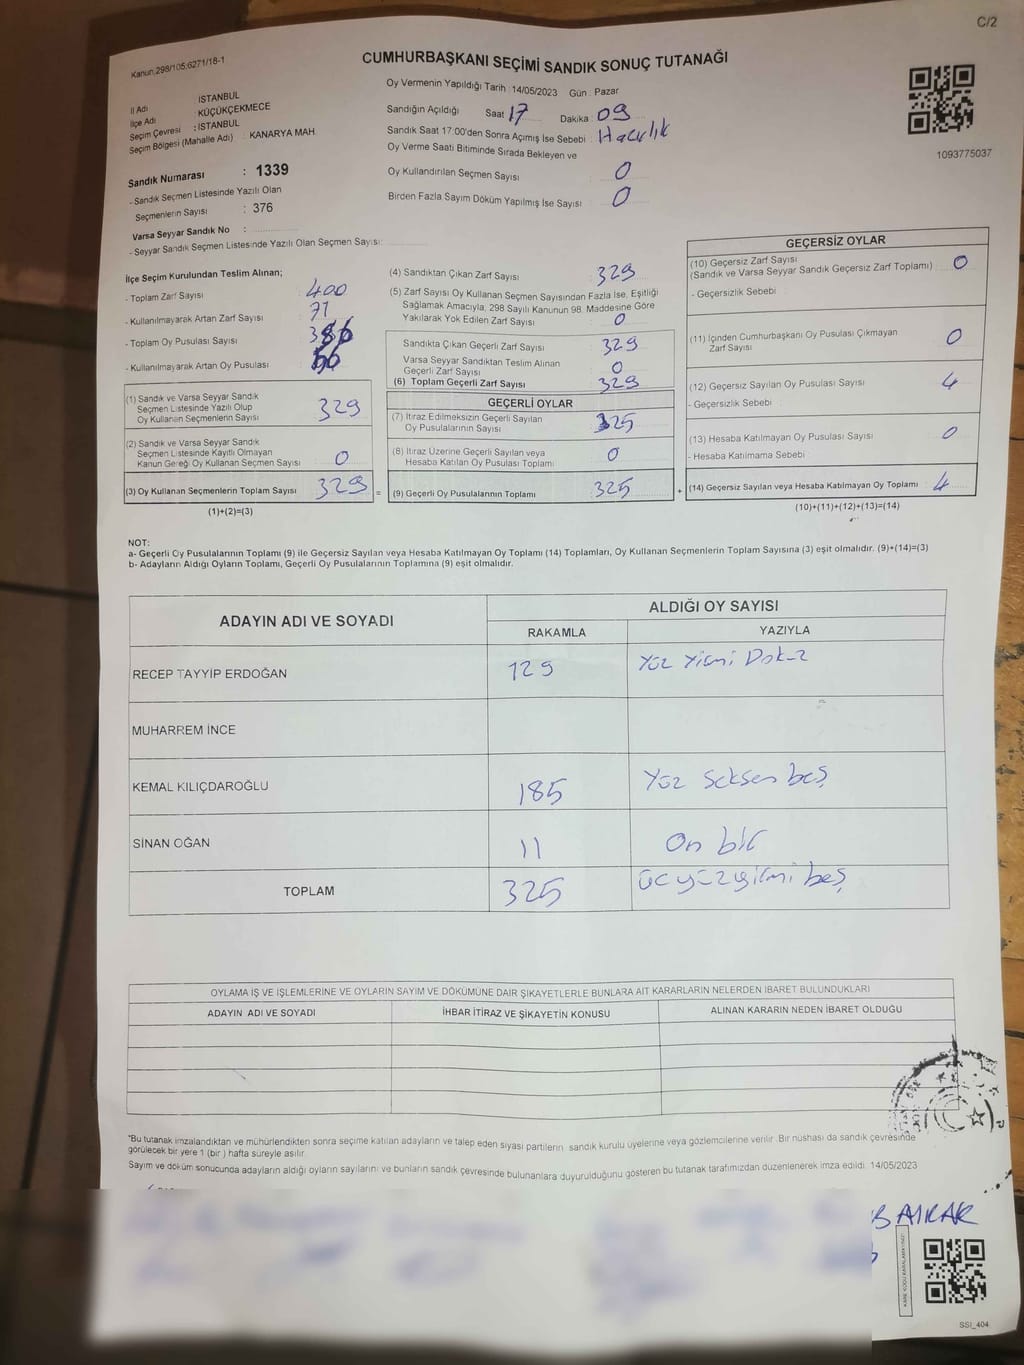 C/2
Kanun:298/105;6271/18-1
CUMHURBAŞKANI SEÇİMİ SANDIK SONUÇ TUTANAĞI
İl Adı : İSTANBUL
İlçe Adı : KÜÇÜKÇEKMECE
Seçim Çevresi : İSTANBUL
Seçim Bölgesi (Mahalle Adı) : KANARYA MAH.
Sandık Numarası : 1339
- Sandık Seçmen Listesinde Yazılı Olan
Seçmenlerin Sayısı : 376
Varsa Seyyar Sandık No :
- Seyyar Sandık Seçmen Listesinde Yazılı Olan Seçmen Sayısı:
Oy Vermenin Yapıldığı Tarih : 14/05/2023 Gün : Pazar
Sandığın Açıldığı Saat 17 Dakika : 09
Sandık Saat 17:00'den Sonra Açımış İse Sebebi : Hazırlık
Oy Verme Saati Bitiminde Sırada Bekleyen ve
Oy Kullandırılan Seçmen Sayısı 0
Birden Fazla Sayım Döküm Yapılmış İse Sayısı 0
1093775037
İlçe Seçim Kurulundan Teslim Alınan;
- Toplam Zarf Sayısı 400
- Kullanılmayarak Artan Zarf Sayısı 71
- Toplam Oy Pusulası Sayısı
- Kullanılmayarak Artan Oy Pusulası
(1) Sandık ve Varsa Seyyar Sandık
Seçmen Listesinde Yazılı Olup
Oy Kullanan Seçmenlerin Sayısı 329
(2) Sandık ve Varsa Seyyar Sandık
Seçmen Listesinde Kayıtlı Olmayan
Kanun Gereği Oy Kullanan Seçmen Sayısı 0
(3) Oy Kullanan Seçmenlerin Toplam Sayısı 329 =
(1)+(2)=(3)
(4) Sandıktan Çıkan Zarf Sayısı 329
(5) Zarf Sayısı Oy Kullanan Seçmen Sayısından Fazla İse, Eşitliği
Sağlamak Amacıyla; 298 Sayılı Kanunun 98. Maddesine Göre
Yakılarak Yok Edilen Zarf Sayısı 0
Sandıkta Çıkan Geçerli Zarf Sayısı 329
Varsa Seyyar Sandıktan Teslim Alınan
Geçerli Zarf Sayısı 0
(6) Toplam Geçerli Zarf Sayısı 329
GEÇERLİ OYLAR
(7) İtiraz Edilmeksizin Geçerli Sayılan
Oy Pusulalarının Sayısı 325
(8) İtiraz Üzerine Geçerli Sayılan veya
Hesaba Katılan Oy Pusulası Toplamı 0
(9) Geçerli Oy Pusulalarının Toplamı 325 +
GEÇERSİZ OYLAR
(10) Geçersiz Zarf Sayısı
(Sandık ve Varsa Seyyar Sandık Geçersiz Zarf Toplamı) 0
- Geçersizlik Sebebi :
(11) İçinden Cumhurbaşkanı Oy Pusulası Çıkmayan
Zarf Sayısı 0
(12) Geçersiz Sayılan Oy Pusulası Sayısı 4
- Geçersizlik Sebebi :
(13) Hesaba Katılmayan Oy Pusulası Sayısı 0
- Hesaba Katılmama Sebebi
(14) Geçersiz Sayılan veya Hesaba Katılmayan Oy Toplamı 4
(10)+(11)+(12)+(13)=(14)
NOT:
a- Geçerli Oy Pusulalarının Toplamı (9) ile Geçersiz Sayılan veya Hesaba Katılmayan Oy Toplamı (14) Toplamları, Oy Kullanan Seçmenlerin Toplam Sayısına (3) eşit olmalıdır. (9)+(14)=(3)
b- Adayların Aldığı Oyların Toplamı, Geçerli Oy Pusulalarının Toplamına (9) eşit olmalıdır.
ADAYIN ADI VE SOYADI ALDIĞI OY SAYISI
RAKAMLA YAZIYLA
RECEP TAYYİP ERDOĞAN 129 Yüz Yirmi Dokuz
MUHARREM İNCE
KEMAL KILIÇDAROĞLU 185 Yüz Seksen beş
SİNAN OĞAN 11 On bir
TOPLAM 325 üçyüzyirmi beş
OYLAMA İŞ VE İŞLEMLERİNE VE OYLARIN SAYIM VE DÖKÜMÜNE DAİR ŞİKAYETLERLE BUNLARA AİT KARARLARIN NELERDEN İBARET BULUNDUKLARI
ADAYIN ADI VE SOYADI İHBAR İTİRAZ VE ŞİKAYETİN KONUSU ALINAN KARARIN NEDEN İBARET OLDUĞU
*Bu tutanak imzalandıktan ve mühürlendikten sonra seçime katılan adayların ve talep eden siyasi partilerin sandık kurulu üyelerine veya gözlemcilerine verilir. Bir nüshası da sandık çevresinde
görülecek bir yere 1 (bir ) hafta süreyle asılır.
Sayım ve döküm sonucunda adayların aldığı oyların sayılarını ve bunların sandık çevresinde bulunanlara duyurulduğunu gösteren bu tutanak tarafımızdan düzenlenerek imza edildi. 14/05/2023
SSİ_404